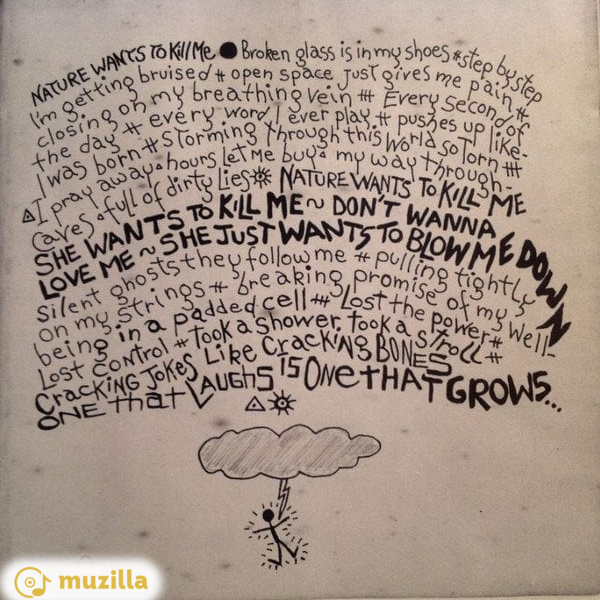 NATURE WANTS TO Kill Me ● Broken glass is in my shoes # step by step
I'm getting bruised # open space just gives me pain #
closing on my breathing vein # Every second of
the day # every word I ever play # pushes up like-
I was born # storming through this World so Torn #
△ I pray away △ hours let me buy △ my way through-
caves △ full of dirty Lies ☼ NATURE WANTS TO KILL ME
SHE WANTS TO KILL ME ~ DON'T WANNA
LOVE ME ~ SHE JUST WANTS TO BLOW ME DOWN
Silent ghosts they follow me # pulling tightly
on my strings # breaking promise of my well-
being in a padded cell # Lost the power #
Lost control # Took a shower, took a stroll #
CRACKING JOKES LIKE CRACKING BONES
ONE that LAUGHS IS ONE tHAT GROWS...
△ ☼
muzilla